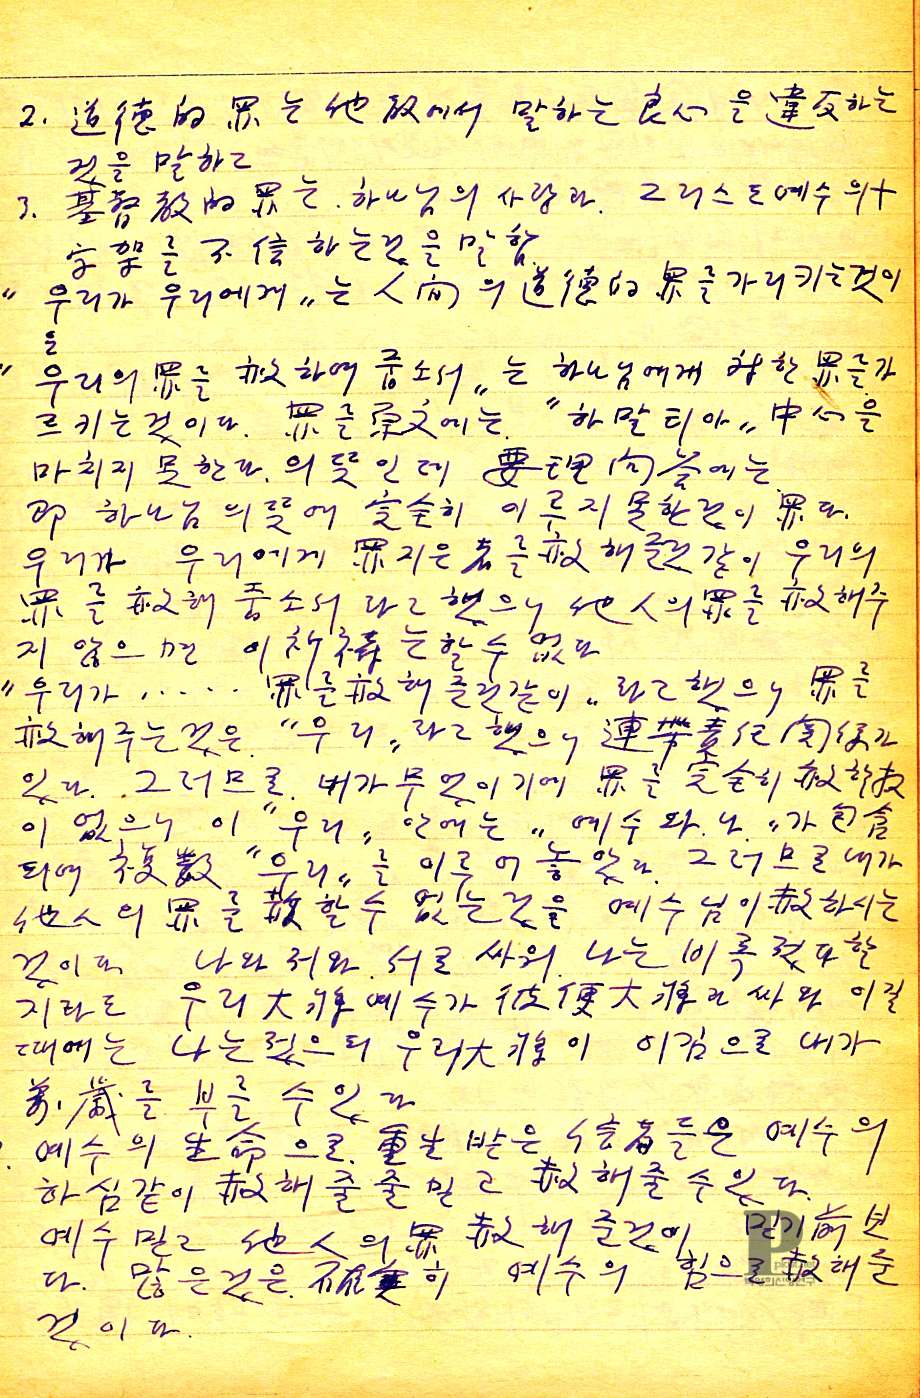 2. 道德的 罪는 他敎에서 말하는 良心을 違反하는
것을 말하고
3. 基督敎的罪는. 하나님의 사랑과. 그리스도예수의 十
字架를 不信하는것을 말함.
" 우리가 우리에게 " 는 人間의 道德的 罪를 가리키는것이
오
" 우리의 罪를 赦하여 줍소서 " 는 하나님에게 향한 罪를 가
르키는것이다. 罪를 原文에는. " 하말티아 " 中心을
마치지 못한다. 의 뜻인데 要理問答에는
即 하나님의 뜻에 完全히 이루지 못한것이 罪다.
우리가 우리에게 罪지은 者를 赦해준것같이 우리의
罪를 赦해 줍소서 라고 했으니 他人의 罪를 赦해주
지 않으면 이 祈禱는 할수 없다
" 우리가 ‥‥‥ 罪를 赦해준것같이 " 라고 했으니 罪를
赦해주는것은. " 우리 " 라고 했으니 連帶責任 関係가
있다. 그러므로. 내가 무엇이기에 罪를 完全히 赦할수
이 없으니 이 " 우리 " 안에는 " 예수와. 나. " 가 包含
되여 複數 " 우리 " 를 이루어 놓았다. 그러므로 내가
他人의 罪를 赦할수 없는것을 예수님이 赦하시는
것이다 나와 저와. 서로 싸워. 나는 비록 졌다할
지라도 우리大將 예수가 彼便大將과 싸와 이길
때에는 나는 졌으되 우리大將이 이김으로 내가
萬歲를 부를 수 있다
예수의 生命으로. 重生받은 信者들은 예수의
하심같이 赦해줄줄 믿고 赦해줄수있다.
예수믿고 他人의罪 赦해준것이 믿기前보
다. 많은것은. 確實히 예수의 힘으로 赦해준
것이다.